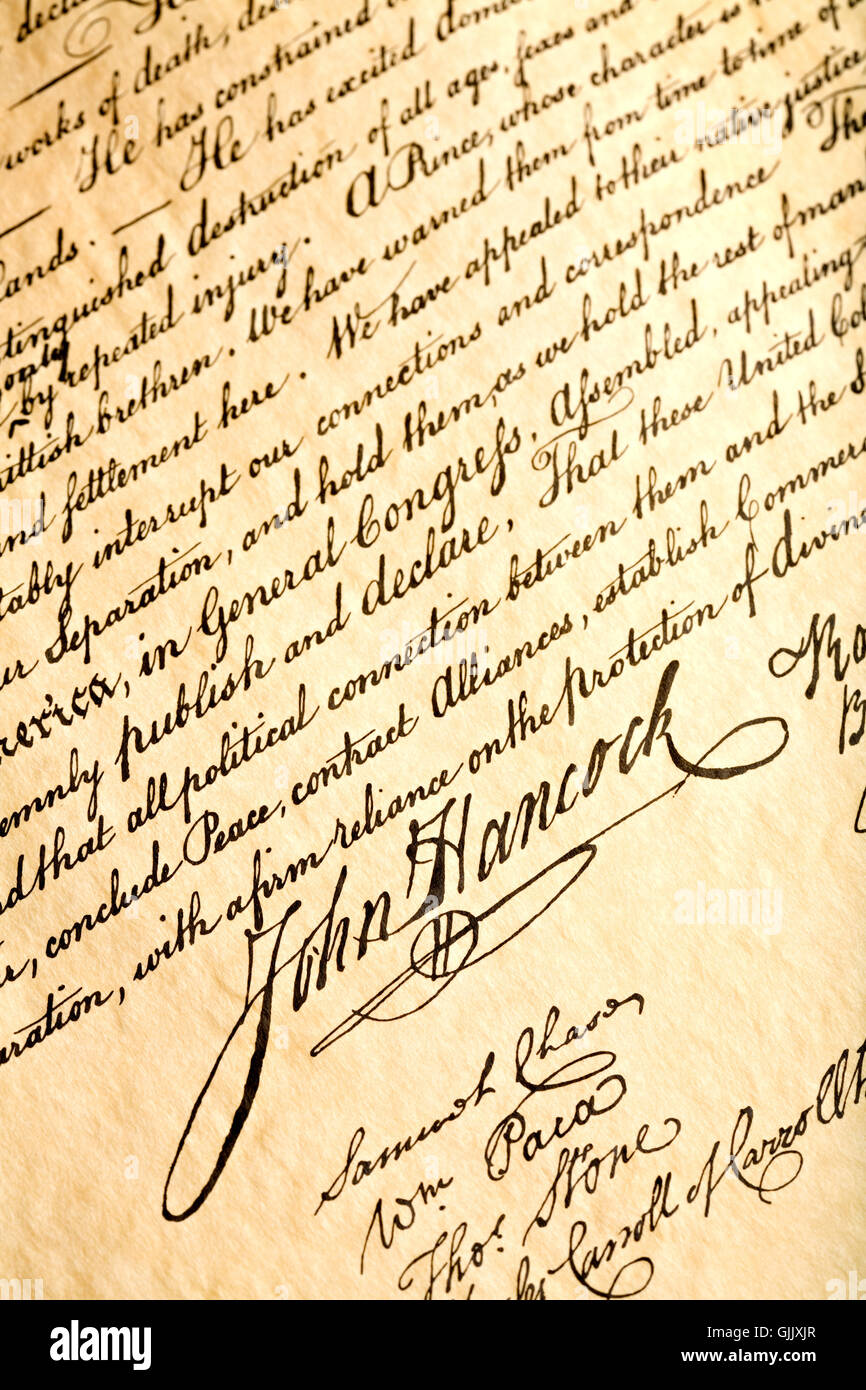 decla
works of death, de
He has constrained
— He has excited domes
lands. —
stinguished destruction of all ages, sexes and
by repeated injury. A Prince, whose character is
ittish brethren. We have warned them from time to time of
and settlement here. We have appealed to their native justice
tably interrupt our connections and correspondence The
ur Separation, and hold them, as we hold the rest of man
merica, in General Congress, Assembled, appealing
emnly publish and declare, That these United Col
nd that all political connection between them and the S
r, conclude Peace, contract Alliances, establish Commer
aration, with a firm reliance on the protection of divine
John Hancock
Ro
B
Samuel Chase
Wm. Paca
Thos. Stone
Carroll of Carrollt
alamy
a
Image ID: GJJXJR
www.alamy.com